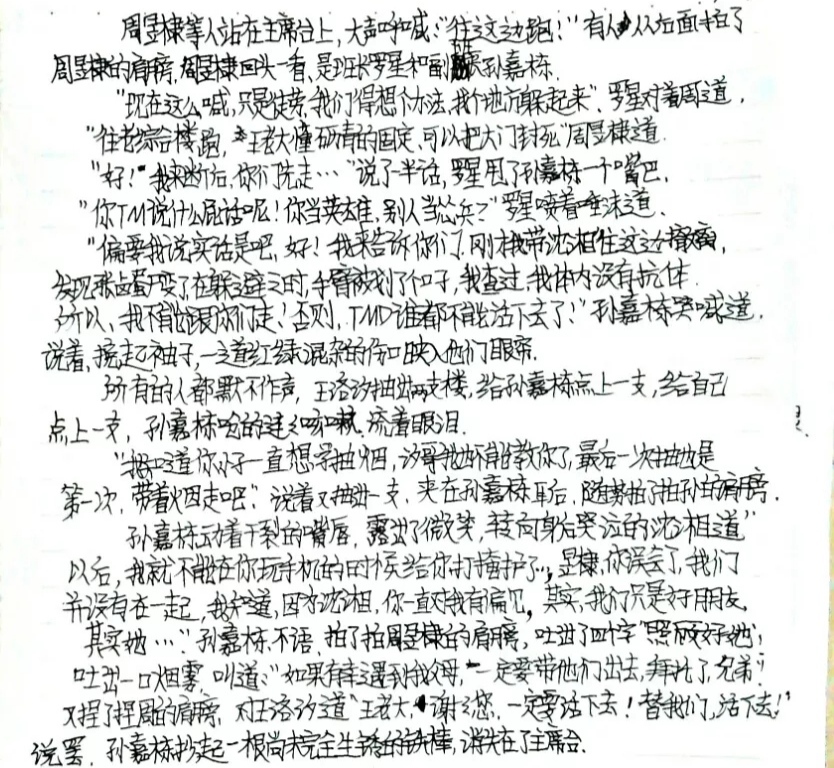 周昱棣等人站在主席台上，大声呼喊："往这边跑！"有人从后面拍了
周昱棣的肩膀，周昱棣回头一看，是班长罗星和副班孙嘉栋．
"现在这么喊，只是徒劳，我们得想个办法，找个地方躲起来"．罗星对着周道，
"往老综合楼跑，王老大懂沥青的固定，可以把大门封死"周昱棣道．
"好！我来断后，你们先走…"说了半话，罗星甩了孙嘉栋一个嘴巴．
"你TM说什么屁话呢！你当英雄，别人当怂兵？"罗星喷着唾沫道．
"偏要我说实话是吧，好！我来告诉你们，刚才我带沈湘往这边撤离，
发现张卤蛋尸变了在躲避之时，手臂被划了个口子，我查过，我体内没有抗体．
所以，我不能跟你们走！否则，TMD谁都不能活下去了！"孙嘉栋哭喊道，
说着，挽起袖子，一道红绿混杂的伤口映入他们眼帘．
所有的人都默不作声，王洛汐抽出两支烟，给孙嘉栋点上一支，给自己
点上一支，孙嘉栋呛的连连咳嗽，流着眼泪．
"我知道你小子一直想学抽烟，汐哥我也不能教你了，最后一次抽也是
第一次，带着烟走吧"，说着又抽出一支，夹在孙嘉栋耳后，随势拍了拍孙的肩膀．
孙嘉栋动着干裂的嘴唇，露出了微笑，转向身后哭泣的沈湘道"
以后，我就不能在你玩手机的时候给你打掩护了，昱棣，你误会了，我们
并没有在一起，我知道，因为沈湘，你一直对我有偏见，其实，我们只是好朋友．
其实她…"孙嘉栋不语，拍了拍周昱棣的肩膀，吐出了四个字"照顾好她"，
吐出一口烟雾，叫道："如果有幸遇到我父母，一定要带他们出去，拜托了，兄弟"
又捏了捏周的肩膀，对王洛汐道"王老大，谢谢您，一定要活下去！替我们，活下去！"
说罢．孙嘉栋抄起一根尚未完全生锈的铁棒，消失在了主席台．